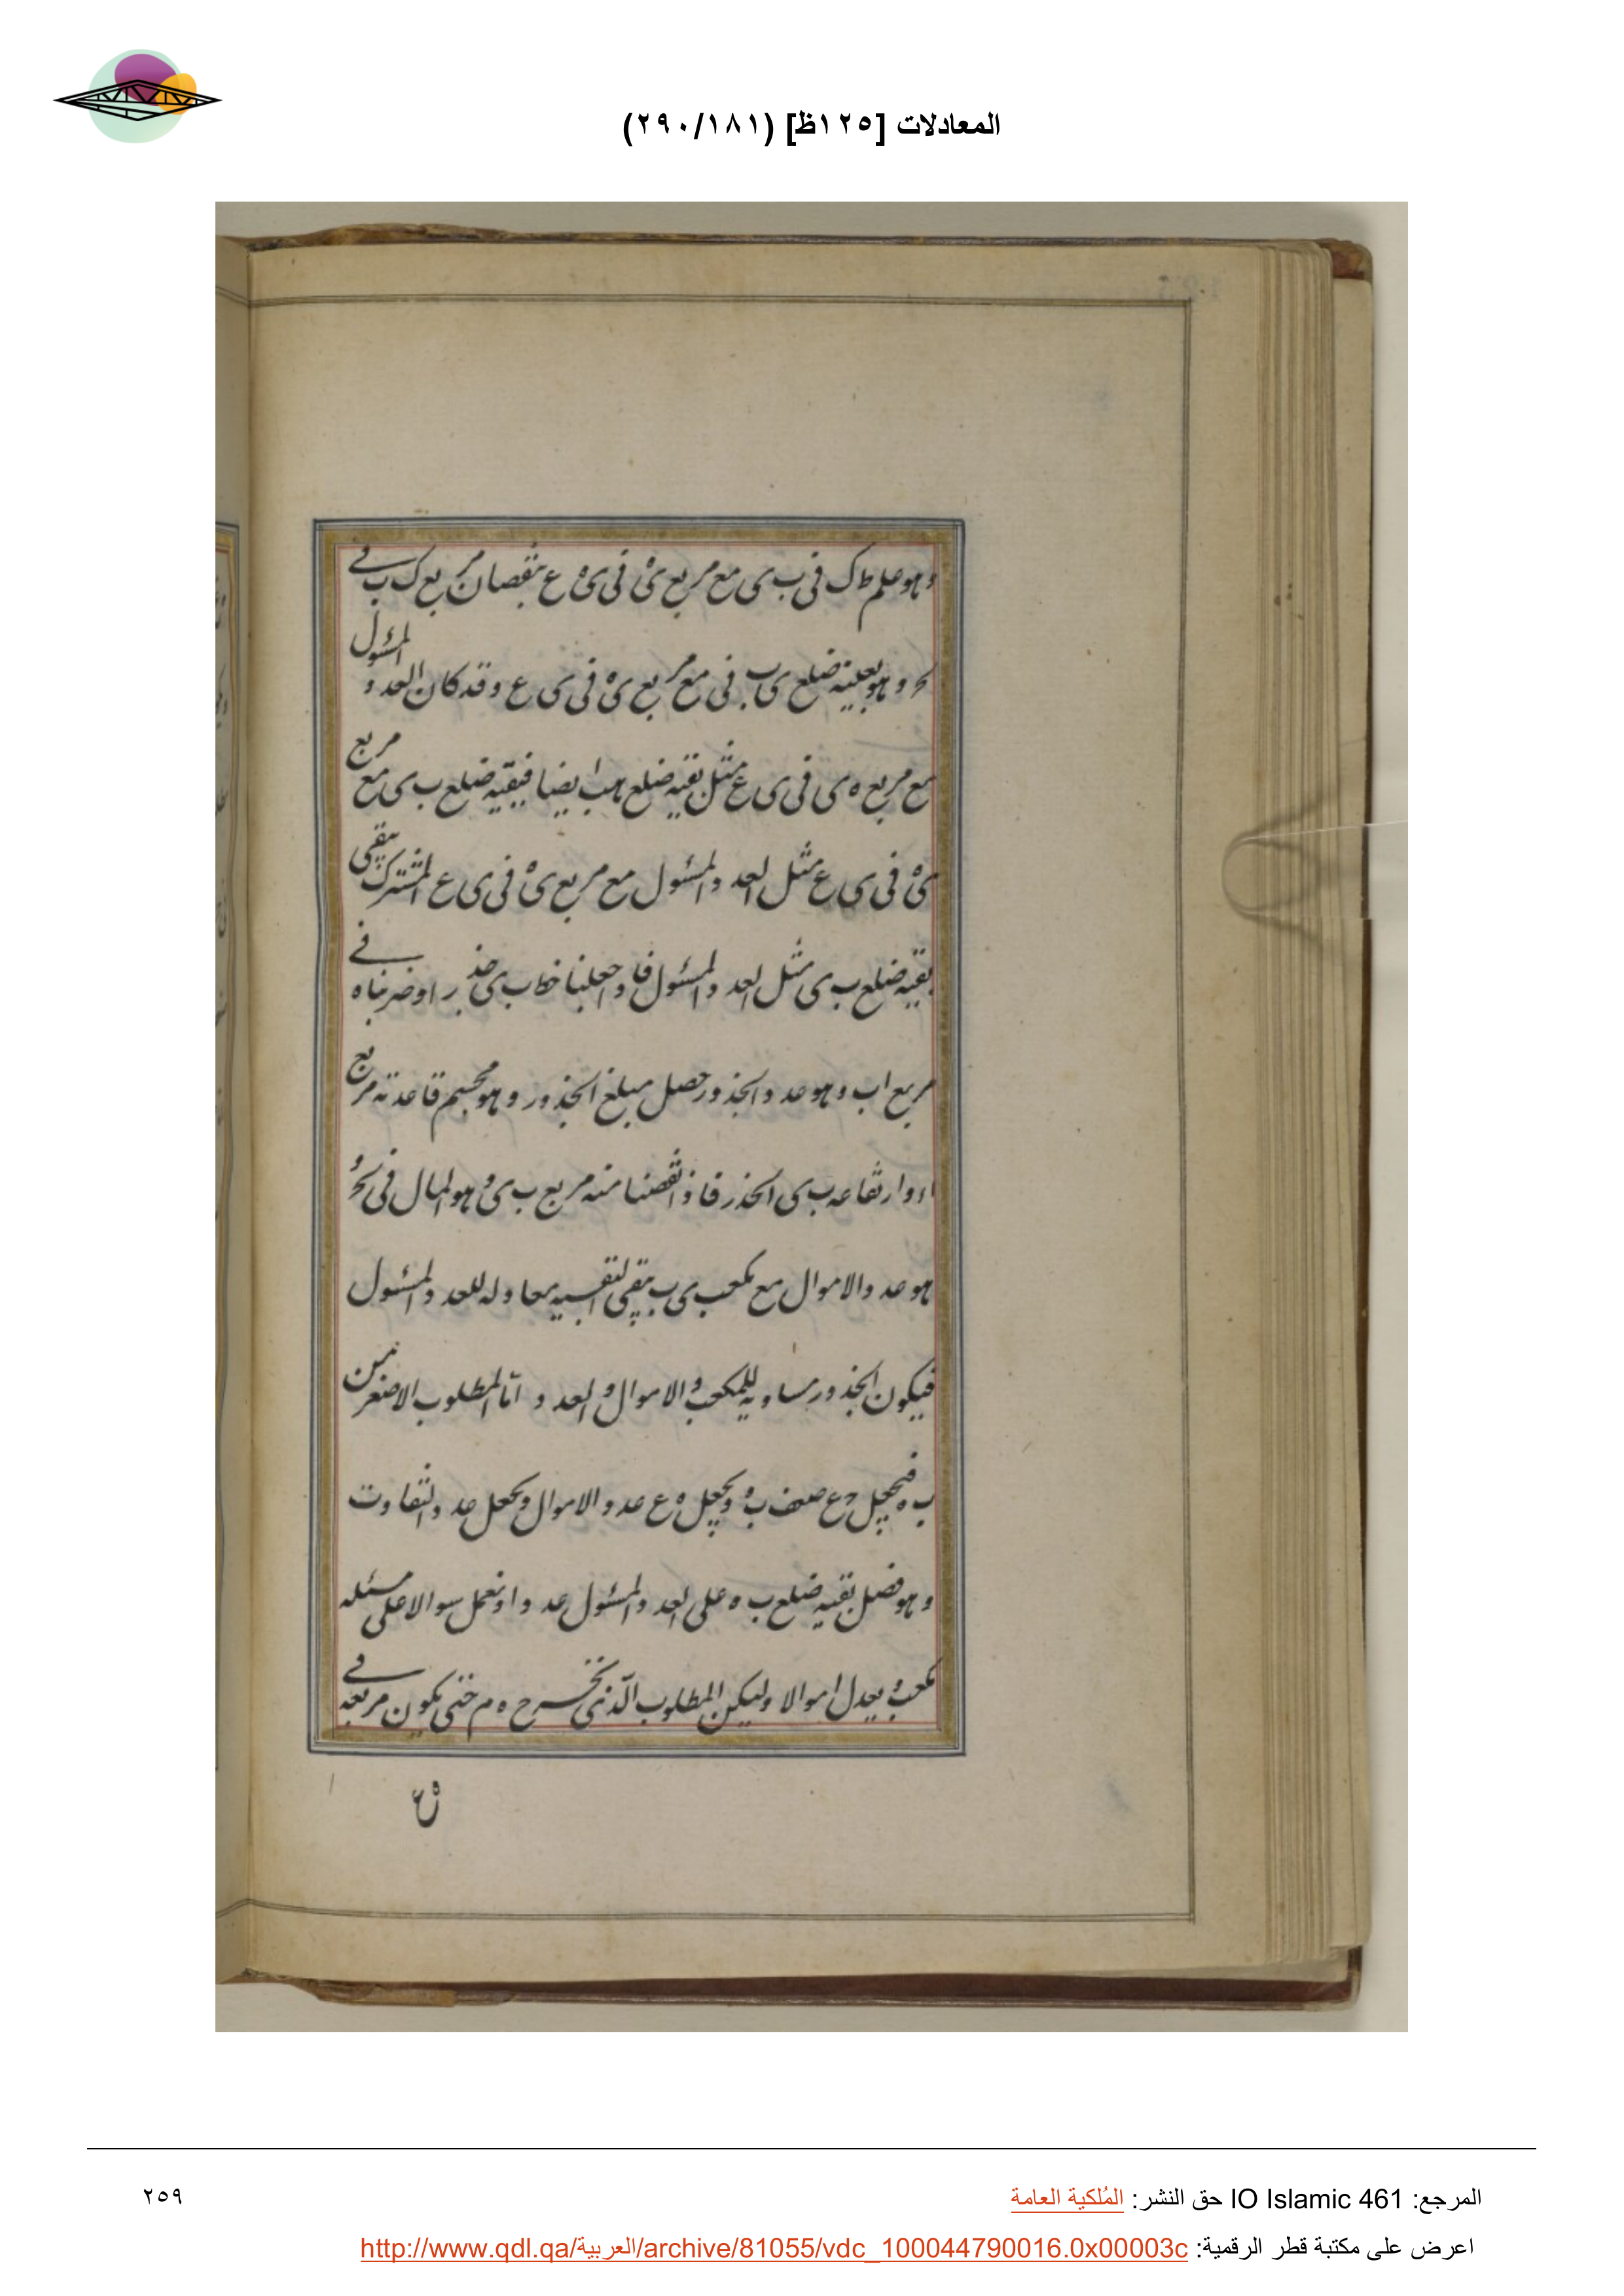 المعادلات [١٢٥ظ] (٢٩٠/١٨١)
وهو علم ط ك في ب ى مع مربع ى ه في ى ع بنقصان مربع ك ب في
وهو بعينه ضلع ى ب في مع مربع ى ه في ى ع وقد كان العدد المسئول
مع مربع ه ى في ى ع مثل بقيه ضلع ه ب ايضا فبقيه ضلع ب ى مع مربع
ى ه في ى ع مثل العدد المسئول مع مربع ى ه في ى ع المشترك يبقى
بقيه ضلع ب ى مثل العدد المسئول فاذا جعلنا خط ب ى جذرا وضربناه في
مربع ا ب وهو عدد الجذور حصل مبلغ الجذور وهو مجسم قاعدته مربع
ا وارتفاعه ب ى الجذر فاذا نقصنا منه مربع ب ى وهو المال في
هو عدد الاموال مع مكعب ى ب بقى البقيه معادله للعدد المسئول
فيكون الجذور مساويه للمكعب والاموال والعدد و اما المطلوب الاصغر من
ب ه فيجعل ح ع ضعف ب ه ويجعل ه ع عدد الاموال ويجعل عدد التفاوت
وهو فضل بقيه ضلع ب ه على العدد المسئول عددا ونعمل سوالا على مسئله
مكعب يعدل اموالا وليكن المطلوب الذى يخرج ه م حتى يكون مربعه في
ه ع
المرجع: IO Islamic 461 حق النشر: المُلكية العامة
٢٥٩
اعرض على مكتبة قطر الرقمية: http://www.qdl.qa/العربية/archive/81055/vdc_100044790016.0x00003c